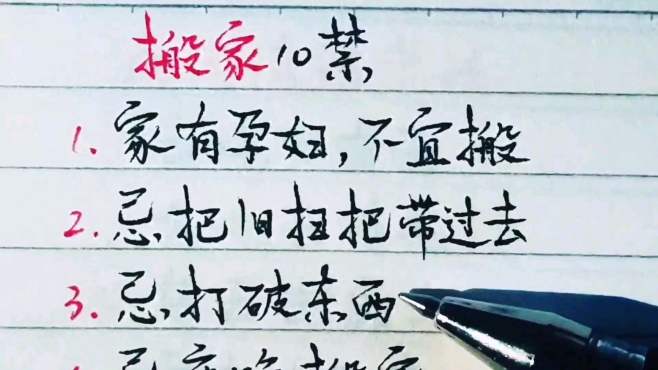 搬家10禁
1. 家有孕妇,不宜搬
2. 忌把旧扫把带过去
3. 忌打破东西